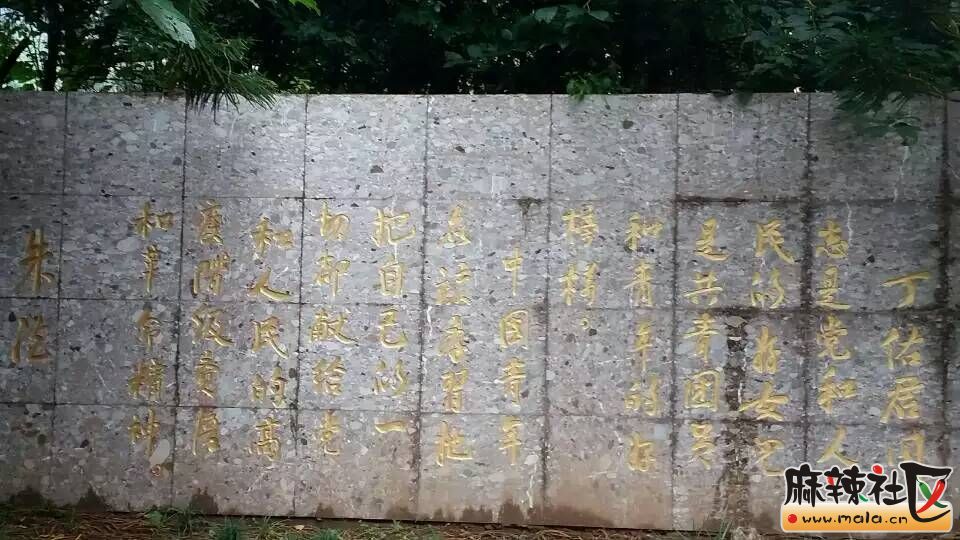 丁佑君同
志是党和人
民的好女儿
是共青团员
和青年的好
榜样，
中国青年
应该学习她
把自己的一
切都献给党
和人民的高
度阶级觉悟
和革命精神
朱德
麻辣社区
www.mala.cn